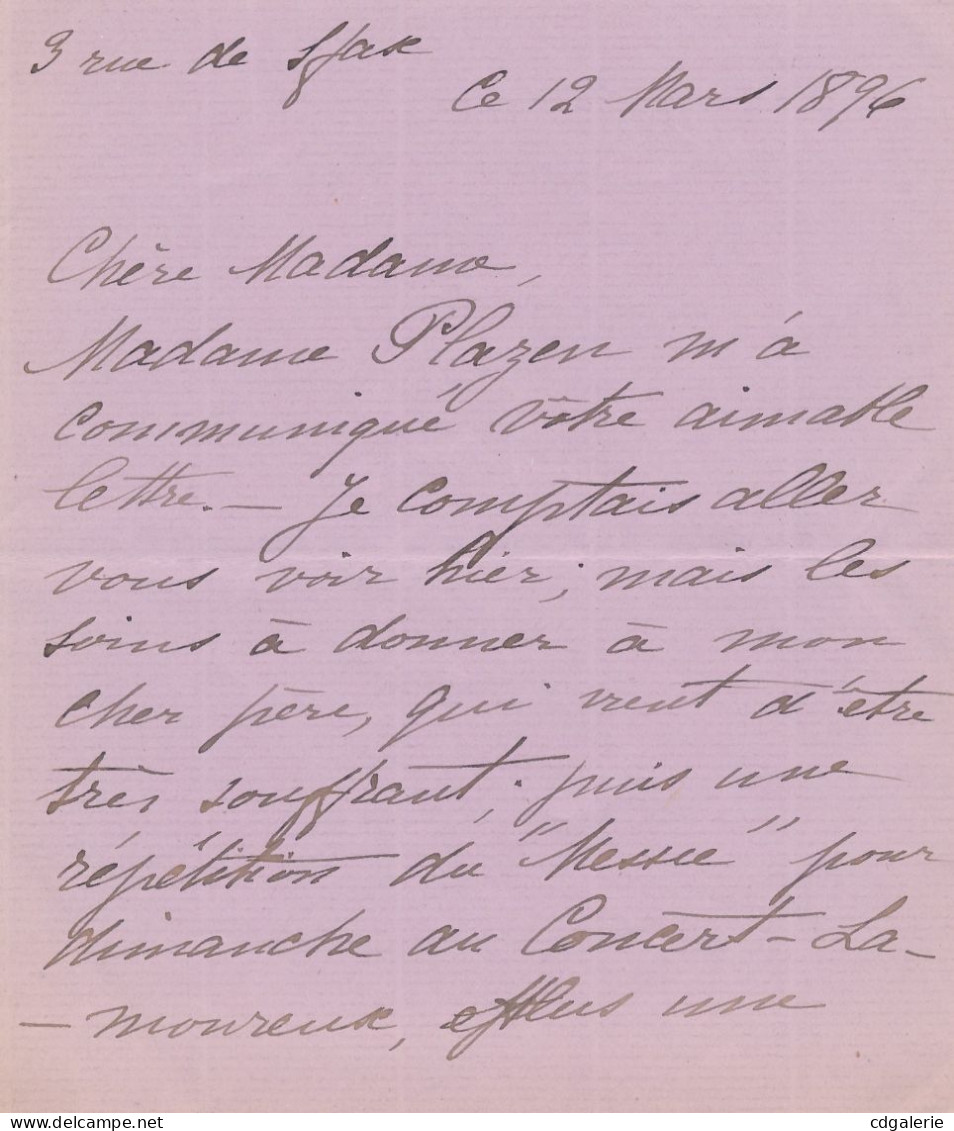 3 rue de Sfax
Ce 12 Mars 1896
Chère Madame,
Madame Plazen m'a
communiqué vôtre aimable
lettre. — Je comptais aller
vous voir hier; mais les
soins à donner à mon
cher père, qui vient d'être
très souffrant; puis une
répétition du "Messie" pour
dimanche au Concert-La-
-moureux, plus une
delcampe.net
cdgalerie